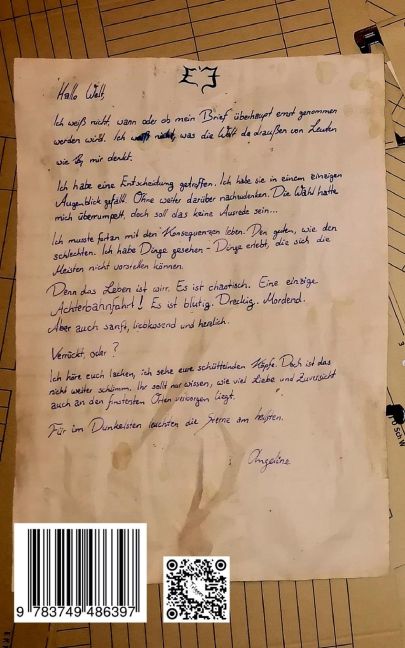 EJ
Hallo Welt,
Ich weiß nicht, wann oder ob mein Brief überhaupt ernst genommen
werden wird. Ich weiß nicht, was die Welt da draußen von Leuten
wie mir denkt.
Ich habe eine Entscheidung getroffen. Ich habe sie in einem einzigen
Augenblick gefällt. Ohne weiter darüber nachzudenken. Die Wahl hatte
mich überrumpelt, doch soll das keine Ausrede sein...
Ich musste fortan mit den Konsequenzen leben. Den guten, wie den
schlechten. Ich habe Dinge gesehen - Dinge erlebt, die sich die
Meisten nicht vorstellen können.
Denn das Leben ist wirr. Es ist chaotisch. Eine einzige
Achterbahnfahrt! Es ist blutig. Dreckig. Mordend.
Aber auch sanft, liebkosend und herzlich.
Verrückt, oder?
Ich höre euch lachen, ich sehe eure schüttelnden Köpfe. Doch ist das
nicht weiter schlimm. Ihr sollt nur wissen, wie viel Liebe und Zuversicht
auch an den finstersten Orten verborgen liegt.
Für im Dunkelsten leuchten die Sterne am hellsten.
Angelina
9 783749 486397